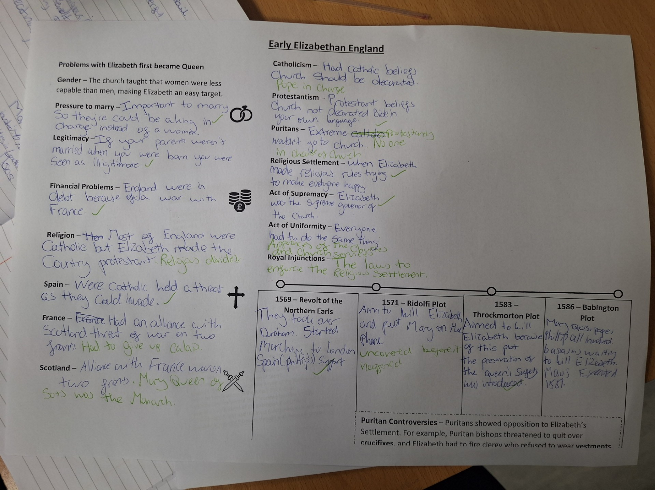 Early Elizabethan England
Problems with Elizabeth first became Queen
Gender – The church taught that women were less
capable than men, making Elizabeth an easy target.
Pressure to marry – Important to marry
so they're could be a king in
charge instead of a women.
Legitimacy – If your parent weren't
married when you were born you were
seen as illigitimate
Financial Problems – England were in
debt because of a war with
France
Religion – Most of England were
Catholic but Elizabeth made the
Country protestant Religious divide
Spain – Were Catholic held a threat
as they could invade.
France – France Had an alliance with
Scotland threat of war on two
fronts Had to give us Calais
Scotland – Aliance with France war on
two fronts. Mary Queen of
Scots was the
Catholicism – Had Catholic beliefs
Church should be decorated
Pope in charge
Protestantism – Protestant beliefs
Church not decorated Bible in
your own language
Puritans – Extreme Protestants
wouldn't go to church No one
in charge of church
Religious Settlement – When Elizabeth
made religious rules trying
to make everyone happy
Act of Supremacy – Elizabeth
was the supreme governor of
the church
Act of Uniformity – Everyone
had to do the same thing
Royal Injunctions – The laws to
enforce the Religious settlement.
1569 – Revolt of the
Northern Earls
They took over
Durham. Started
Marching to London
Spain
1571 – Ridolfi Plot
Aim to kill Elizabeth
and put Mary on the
throne
uncovered before it
happened
1583 –
Throckmorton Plot
Aimed to kill
Elizabeth because
of this plot
The preservation of
the queen's safety
was introduced
1586 – Babington
Plot
Mary
to kill Elizabeth
Mary Executed
1587
Puritan Controversies – Puritans showed opposition to Elizabeth's
Settlement. For example, Puritan bishops threatened to quit over
crucifixes, and Elizabeth had to fire clergy who refused to wear vestments